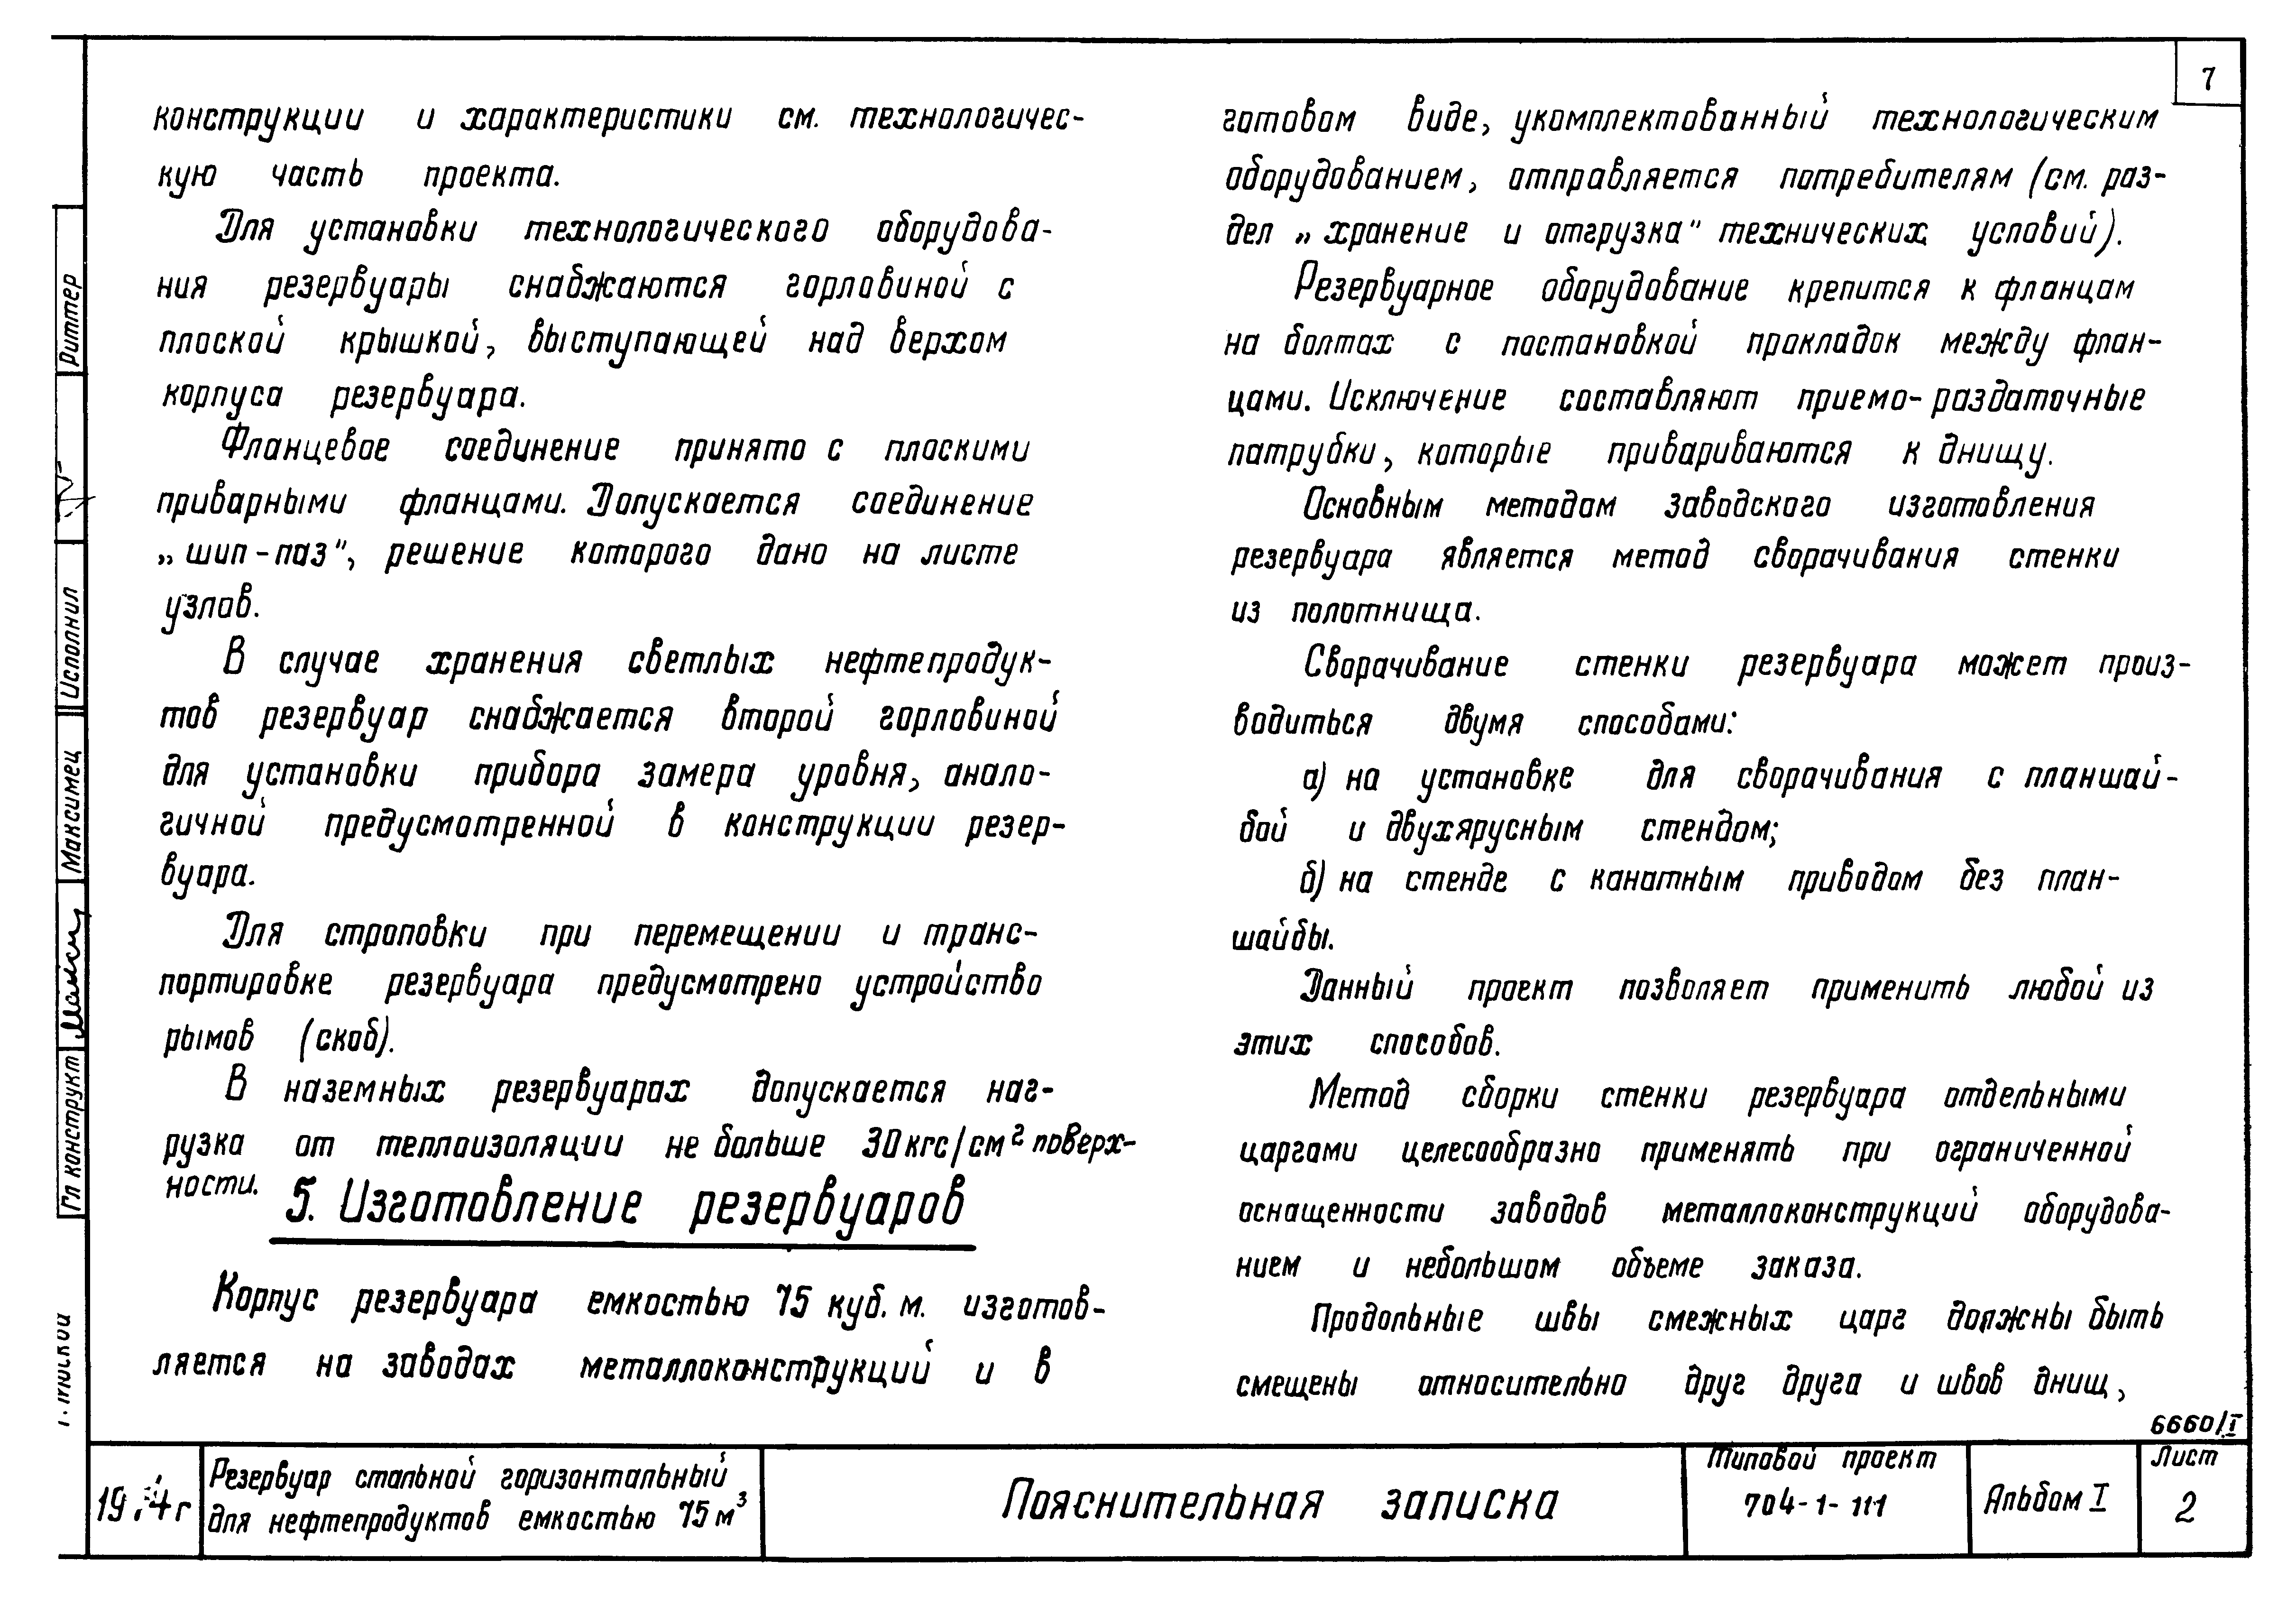 7
конструкции и характеристики см. технологичес-
кую часть проекта.
Для установки технологического оборудова-
ния резервуары снабжаются горловиной с
плоской крышкой, выступающей над верхом
корпуса резервуара.
Фланцевое соединение принято с плоскими
приварными фланцами. Допускается соединение
„шип-паз", решение которого дано на листе
узлов.
В случае хранения светлых нефтепродук-
тов резервуар снабжается второй горловиной
для установки прибора замера уровня, анало-
гичной предусмотренной в конструкции резер-
вуара.
Для строповки при перемещении и транс-
портировке резервуара предусмотрено устройство
рымов (скоб).
В наземных резервуарах допускается наг-
рузка от теплоизоляции не больше 30кгс/см² поверх-
ности.
5. Изготовление резервуаров
Корпус резервуара емкостью 75 куб. м. изготов-
ляется на заводах металлоконструкций и в
готовом виде, укомплектованный технологическим
оборудованием, отправляется потребителям (см. раз-
дел „хранение и отгрузка" технических условий).
Резервуарное оборудование крепится к фланцам
на болтах с постановкой прокладок между флан-
цами. Исключение составляют приемо-раздаточные
патрубки, которые привариваются к днищу.
Основным методом заводского изготовления
резервуара является метод сворачивания стенки
из полотнища.
Сворачивание стенки резервуара может произ-
водиться двумя способами:
а) на установке для сворачивания с планшай-
бой и двухярусным стендом;
б) на стенде с канатным приводом без план-
шайбы.
Данный проект позволяет применить любой из
этих способов.
Метод сборки стенки резервуара отдельными
царгами целесообразно применять при ограниченной
оснащенности заводов металлоконструкций оборудова-
нием и небольшом объеме заказа.
Продольные швы смежных царг должны быть
смещены относительно друг друга и швов днищ,
Риттер
Исполнил
Максимец
Гл конструкт
г. Москва
6660/I
Резервуар стальной горизонтальный
для нефтепродуктов емкостью 75 м³
Пояснительная записка
Типовой проект
704-1-111
Альбом I
Лист
2